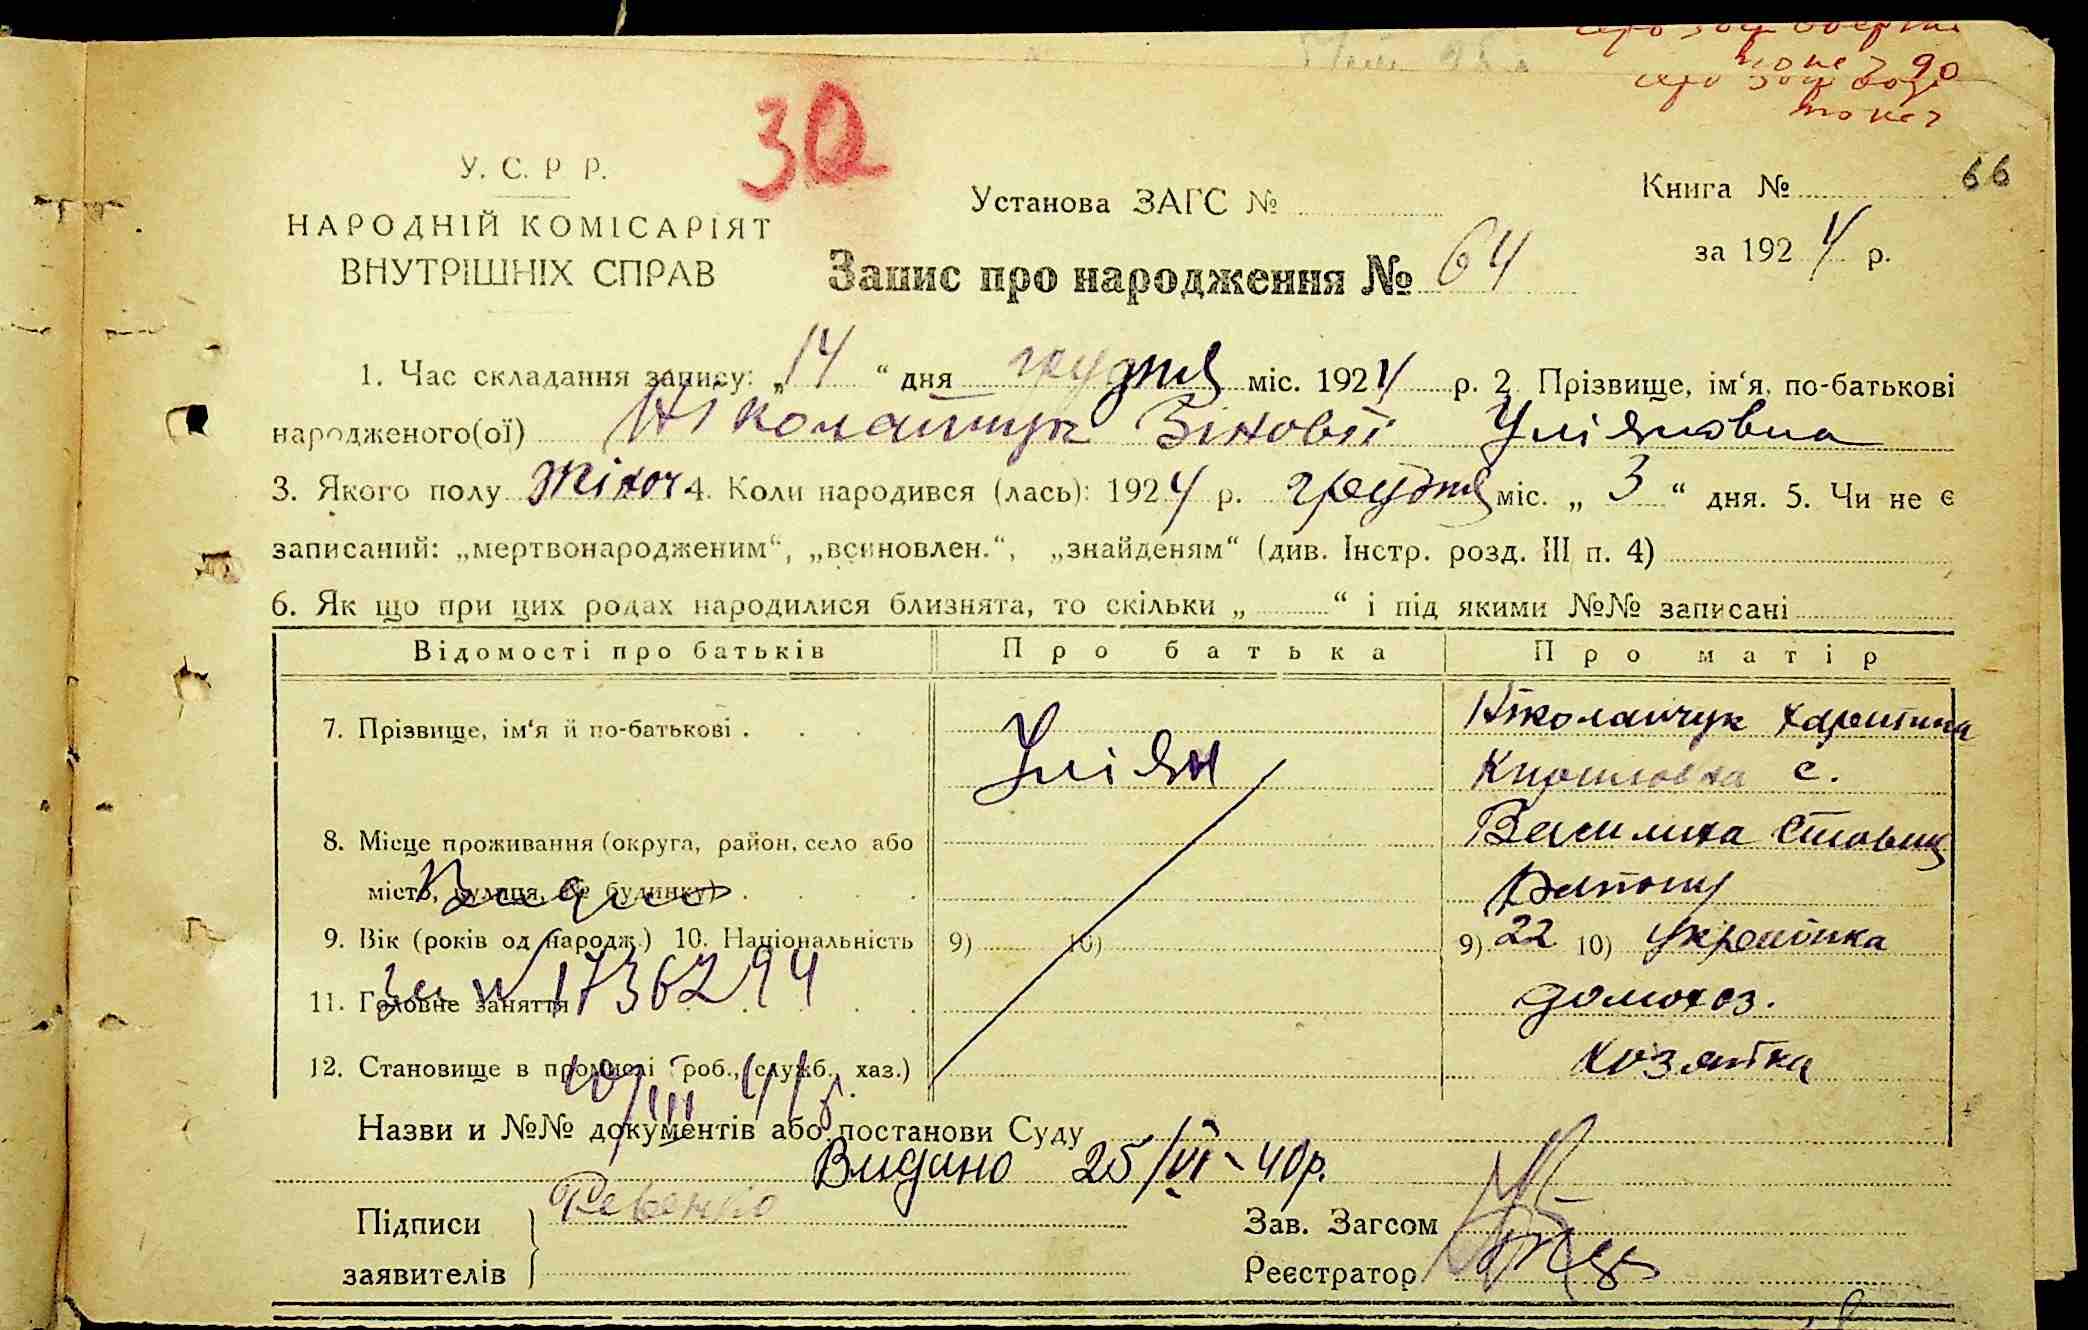 30
66
У. С. Р Р.
НАРОДНІЙ КОМІСАРІЯТ
ВНУТРІШНІХ СПРАВ
Установа ЗАГС №
Книга №
за 1924 р.
Запис про народження № 64
1. Час складання запису: „14“ дня грудня міс. 1924 р. 2 Прізвище, ім‘я, по-батькові
народженого(ої) Ніколайчук Зіновії Уліяновна
3. Якого полу жіноч 4. Коли народився (лась): 1924 р. грудня міс. „ 3 “ дня. 5. Чи не є
записаний: „мертвонародженим“, „всиновлен.“, „знайденям“ (див. Інстр. розд. III п. 4)
6. Як що при цих родах народилися близнята, то скільки „ “ і під якими №№ записані
Відомості про батьків Про батька Про матір
7. Прізвище, ім‘я й по-батькові . Уліян Ніколайчук
с.
8. Місце проживання (округа, район, село або
місто, вулиця, № будинку) Видано
9. Вік (років од народж.) 10. Національність 9) 10) 9) 22 10) Українка
11. Головне заняття домохоз.
№ 1736294
12. Становище в промислі (роб., служб., хаз.) хозяйка
10/III 41 р.
Назви и №№ документів або постанови Суду
Видано 25/VI - 40р.
Підписи Ревенко Зав. Загсом
заявителів Реєстратор